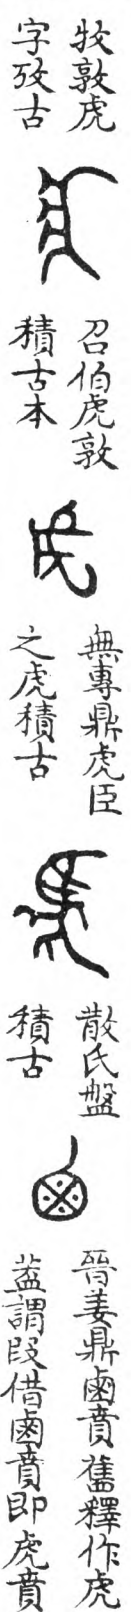 牧敦虎
字攷古
召伯虎敦
積古本
無專鼎虎臣
之虎積古
散氏盤
積古
晉姜鼎鹵賁舊釋作虎
葢謂叚借鹵賁即虎賁